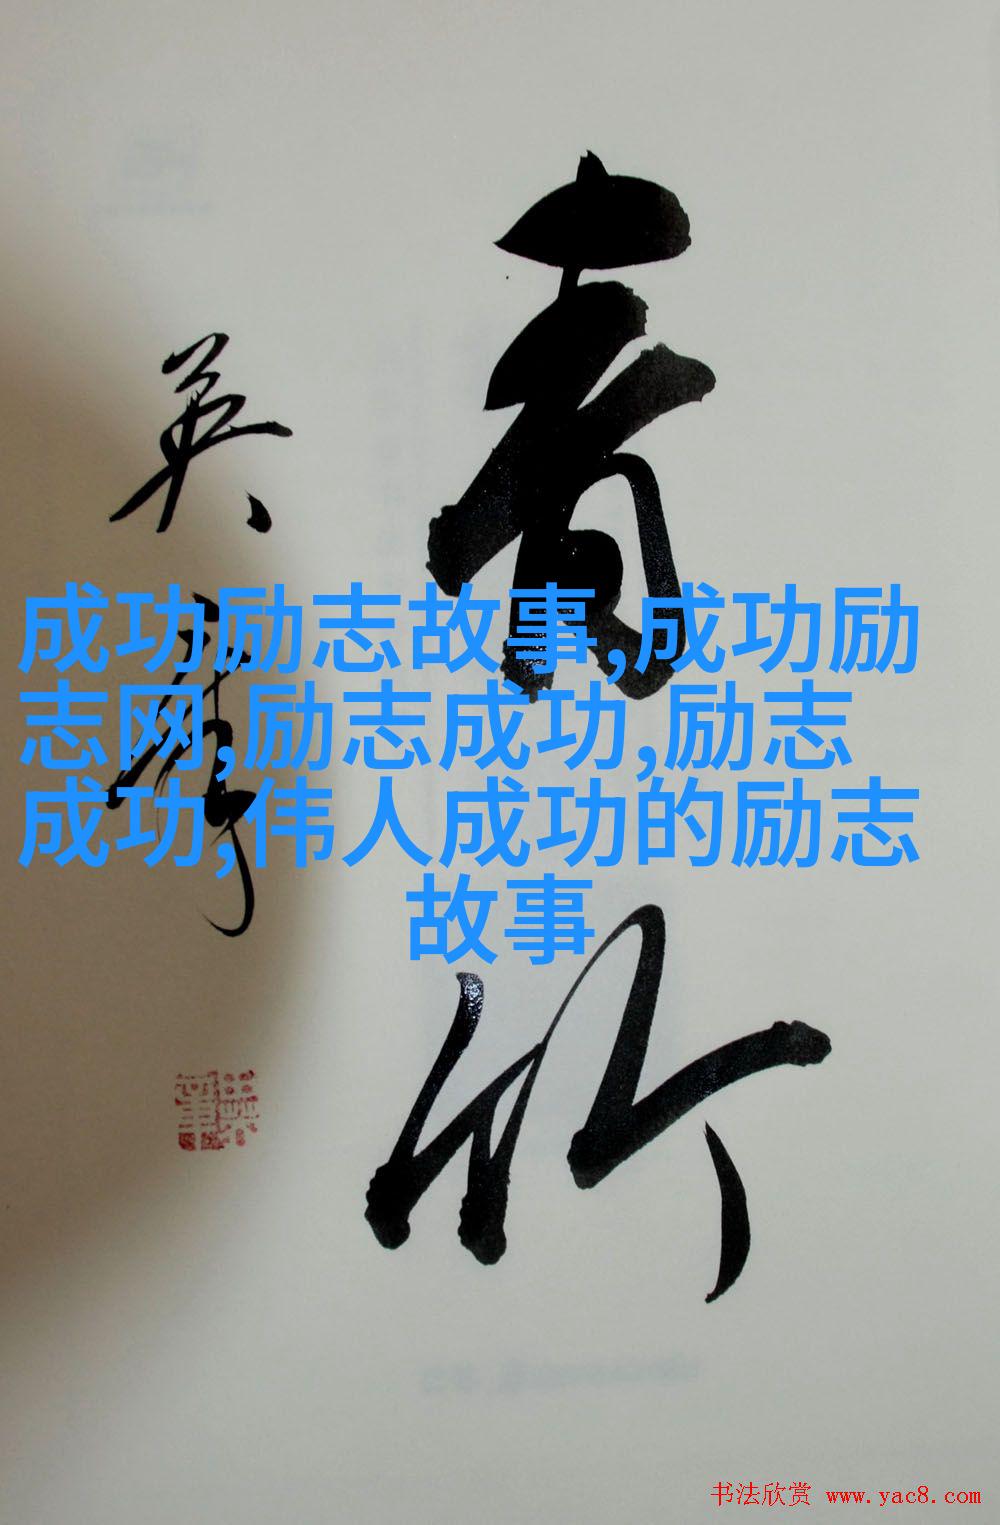 青竹
英
成功励志故事,成功励
志网,励志成功,励志
成功,伟人成功的励志
故事
书法欣赏 www.yac8.com